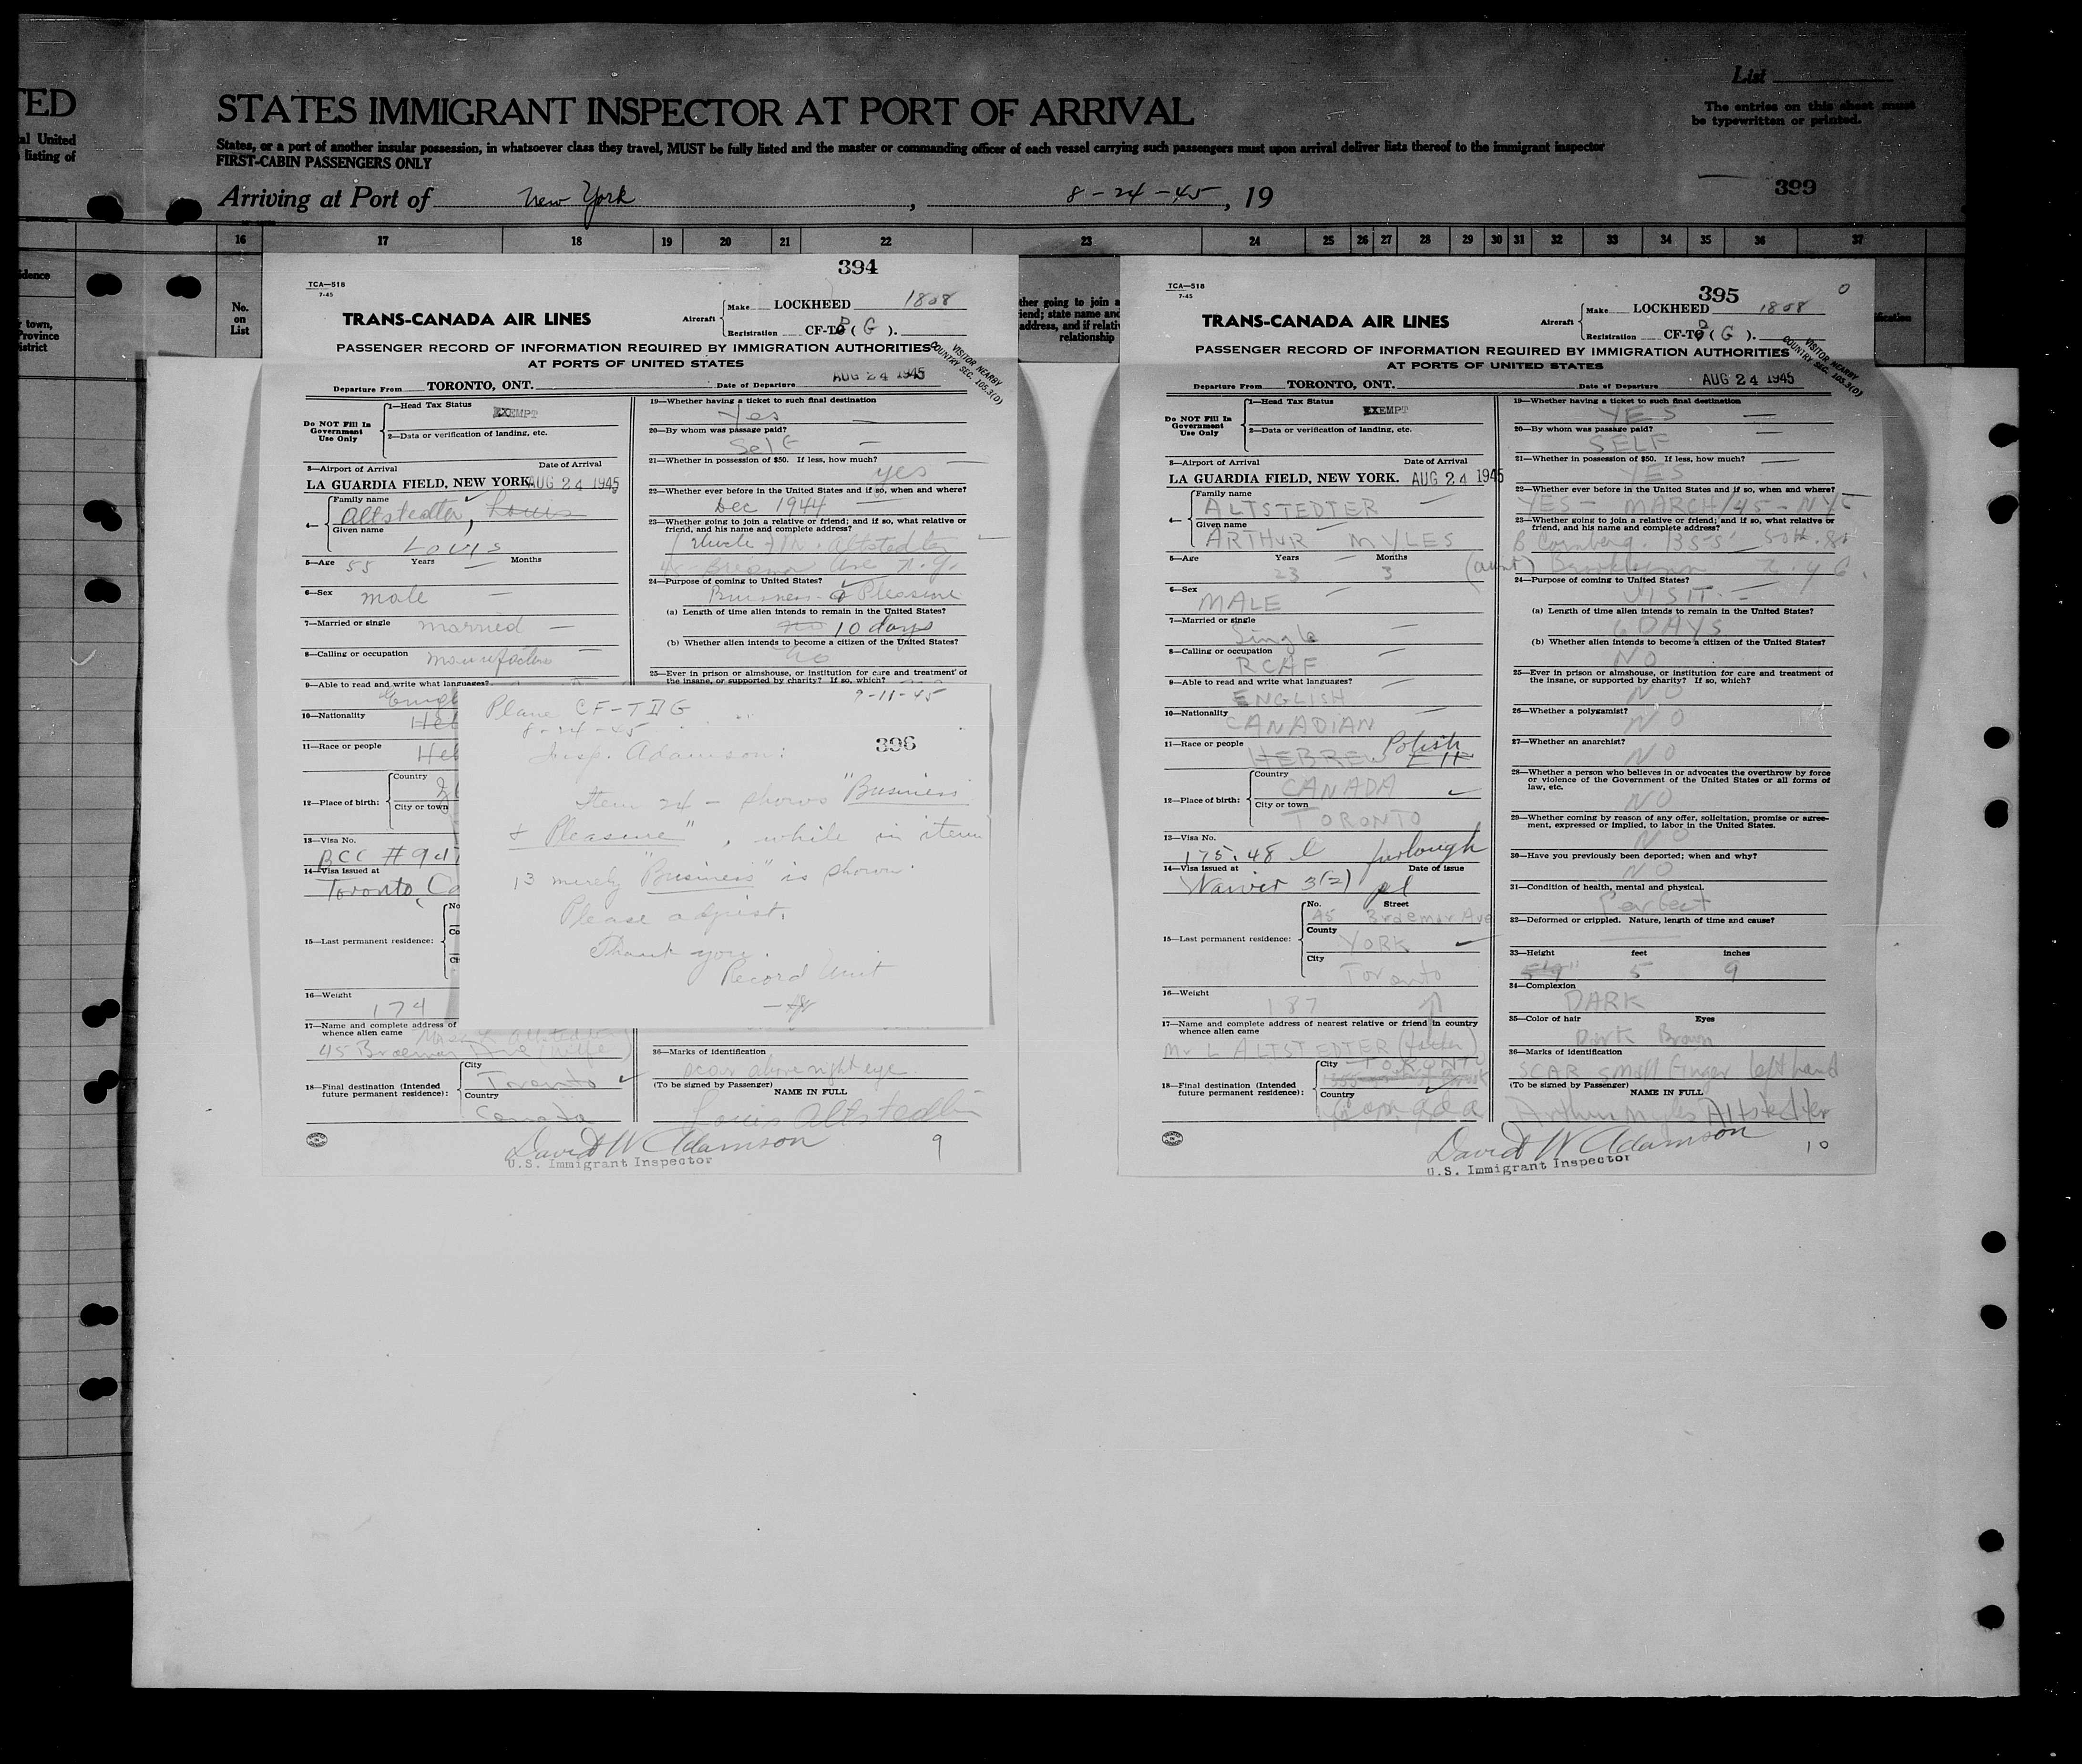 TED
al United
listing of
idence
r town,
Province
istrict
List
The entries on this sheet must
be typewritten or printed.
STATES IMMIGRANT INSPECTOR AT PORT OF ARRIVAL
States, or a port of another insular possession, in whatsoever class they travel, MUST be fully listed and the master or commanding officer of each vessel carrying such passengers must upon arrival deliver lists thereof to the immigrant inspector
FIRST-CABIN PASSENGERS ONLY
Arriving at Port of New York, 8-24-45, 19
399
16 17 18 19 20 21 22 23 24 25 26 27 28 29 30 31 32 33 34 35 36 37
No.
on
List
ther going to join a
iend; state name and
address, and if relati
relationship
394
TCA—518
7-45
TRANS-CANADA AIR LINES
Aircraft Make LOCKHEED 1808
Registration CF-T (G).
PASSENGER RECORD OF INFORMATION REQUIRED BY IMMIGRATION AUTHORITIES
AT PORTS OF UNITED STATES
VISITOR NEARBY
COUNTRY SEC. 105.3(D)
Departure From TORONTO, ONT. Date of Departure AUG 24 1945
Do NOT Fill In
Government
Use Only
1—Head Tax Status EXEMPT
2—Data or verification of landing, etc.
3—Airport of Arrival Date of Arrival
LA GUARDIA FIELD, NEW YORK AUG 24 1945
4— Family name
Altstedter, Louis
Given name
Louis
5—Age 55 Years Months
6—Sex
male
7—Married or single married
8—Calling or occupation
9—Able to read and write what languages?
10—Nationality
11—Race or people
12—Place of birth: Country
City or town
13—Visa No.
BCC #
14—Visa issued at
Toronto, Ca
15—Last permanent residence: No
Co
Ci
16—Weight
174
17—Name and complete address of
whence alien came
45 Braemar Ave (wife)
18—Final destination (Intended
future permanent residence): City
Toronto
Country
Canada
19—Whether having a ticket to such final destination
Yes
20—By whom was passage paid?
Self
21—Whether in possession of $50. If less, how much?
yes
22—Whether ever before in the United States and if so, when and where?
Dec 1944
23—Whether going to join a relative or friend; and if so, what relative or
friend, and his name and complete address?
(Uncle)
24—Purpose of coming to United States?
Business & Pleasure
(a) Length of time alien intends to remain in the United States?
10 days
(b) Whether alien intends to become a citizen of the United States?
no
25—Ever in prison or almshouse, or institution for care and treatment of
the insane, or supported by charity? If so, which?
36—Marks of identification
scar above right eye.
(To be signed by Passenger) NAME IN FULL
Louis Altstedter
David W Adamson
U.S. Immigrant Inspector
9
9-11-45
Plane CF-TDG
8-24-45
396
Insp. Adamson:
Item 24 - shows "Business
& Pleasure", while in item
13 merely "Business" is shown.
Please adjust.
Thank you.
Record Unit
395
TCA—518
7-45
0
TRANS-CANADA AIR LINES
Aircraft Make LOCKHEED 1808
Registration CF-T (G).
PASSENGER RECORD OF INFORMATION REQUIRED BY IMMIGRATION AUTHORITIES
AT PORTS OF UNITED STATES
VISITOR NEARBY
COUNTRY SEC. 105.3(D)
Departure From TORONTO, ONT. Date of Departure AUG 24 1945
Do NOT Fill In
Government
Use Only
1—Head Tax Status EXEMPT
2—Data or verification of landing, etc.
3—Airport of Arrival Date of Arrival
LA GUARDIA FIELD, NEW YORK. AUG 24 1945
4— Family name
ALTSTEDTER
Given name
ARTHUR MYLES
5—Age Years Months
23 3
6—Sex
MALE
7—Married or single
Single
8—Calling or occupation
RCAF
9—Able to read and write what languages?
ENGLISH
10—Nationality
CANADIAN
11—Race or people Polish
HEBREW
12—Place of birth: Country
CANADA
City or town
TORONTO
13—Visa No.
175.48 furlough
14—Visa issued at Date of issue
Waiver 3(2)
15—Last permanent residence: No. Street
45 Braemar Ave
County
YORK
City
Toronto
16—Weight
187
17—Name and complete address of nearest relative or friend in country
whence alien came
Mr L ALTSTEDTER (father)
18—Final destination (Intended
future permanent residence): City
TORONTO
Country
Canada
19—Whether having a ticket to such final destination
YES
20—By whom was passage paid?
SELF
21—Whether in possession of $50. If less, how much?
YES
22—Whether ever before in the United States and if so, when and where?
YES - MARCH/45 - NYC
23—Whether going to join a relative or friend; and if so, what relative or
friend, and his name and complete address?
B Cornberg. 1355 50th St
(aunt) Brooklynn N.Y.C.
24—Purpose of coming to United States?
VISIT
(a) Length of time alien intends to remain in the United States?
6 DAYS
(b) Whether alien intends to become a citizen of the United States?
NO
25—Ever in prison or almshouse, or institution for care and treatment of
the insane, or supported by charity? If so, which?
NO
26—Whether a polygamist?
NO
27—Whether an anarchist?
NO
28—Whether a person who believes in or advocates the overthrow by force
or violence of the Government of the United States or all forms of
law, etc.
NO
29—Whether coming by reason of any offer, solicitation, promise or agree-
ment, expressed or implied, to labor in the United States.
NO
30—Have you previously been deported; when and why?
NO
31—Condition of health, mental and physical.
Perfect
32—Deformed or crippled. Nature, length of time and cause?
33—Height feet inches
5 9
34—Complexion
DARK
35—Color of hair Eyes
Dark Brown
36—Marks of identification
SCAR small finger left hand
(To be signed by Passenger) NAME IN FULL
Arthur Myles Altstedter
David W Adamson
U.S. Immigrant Inspector
10